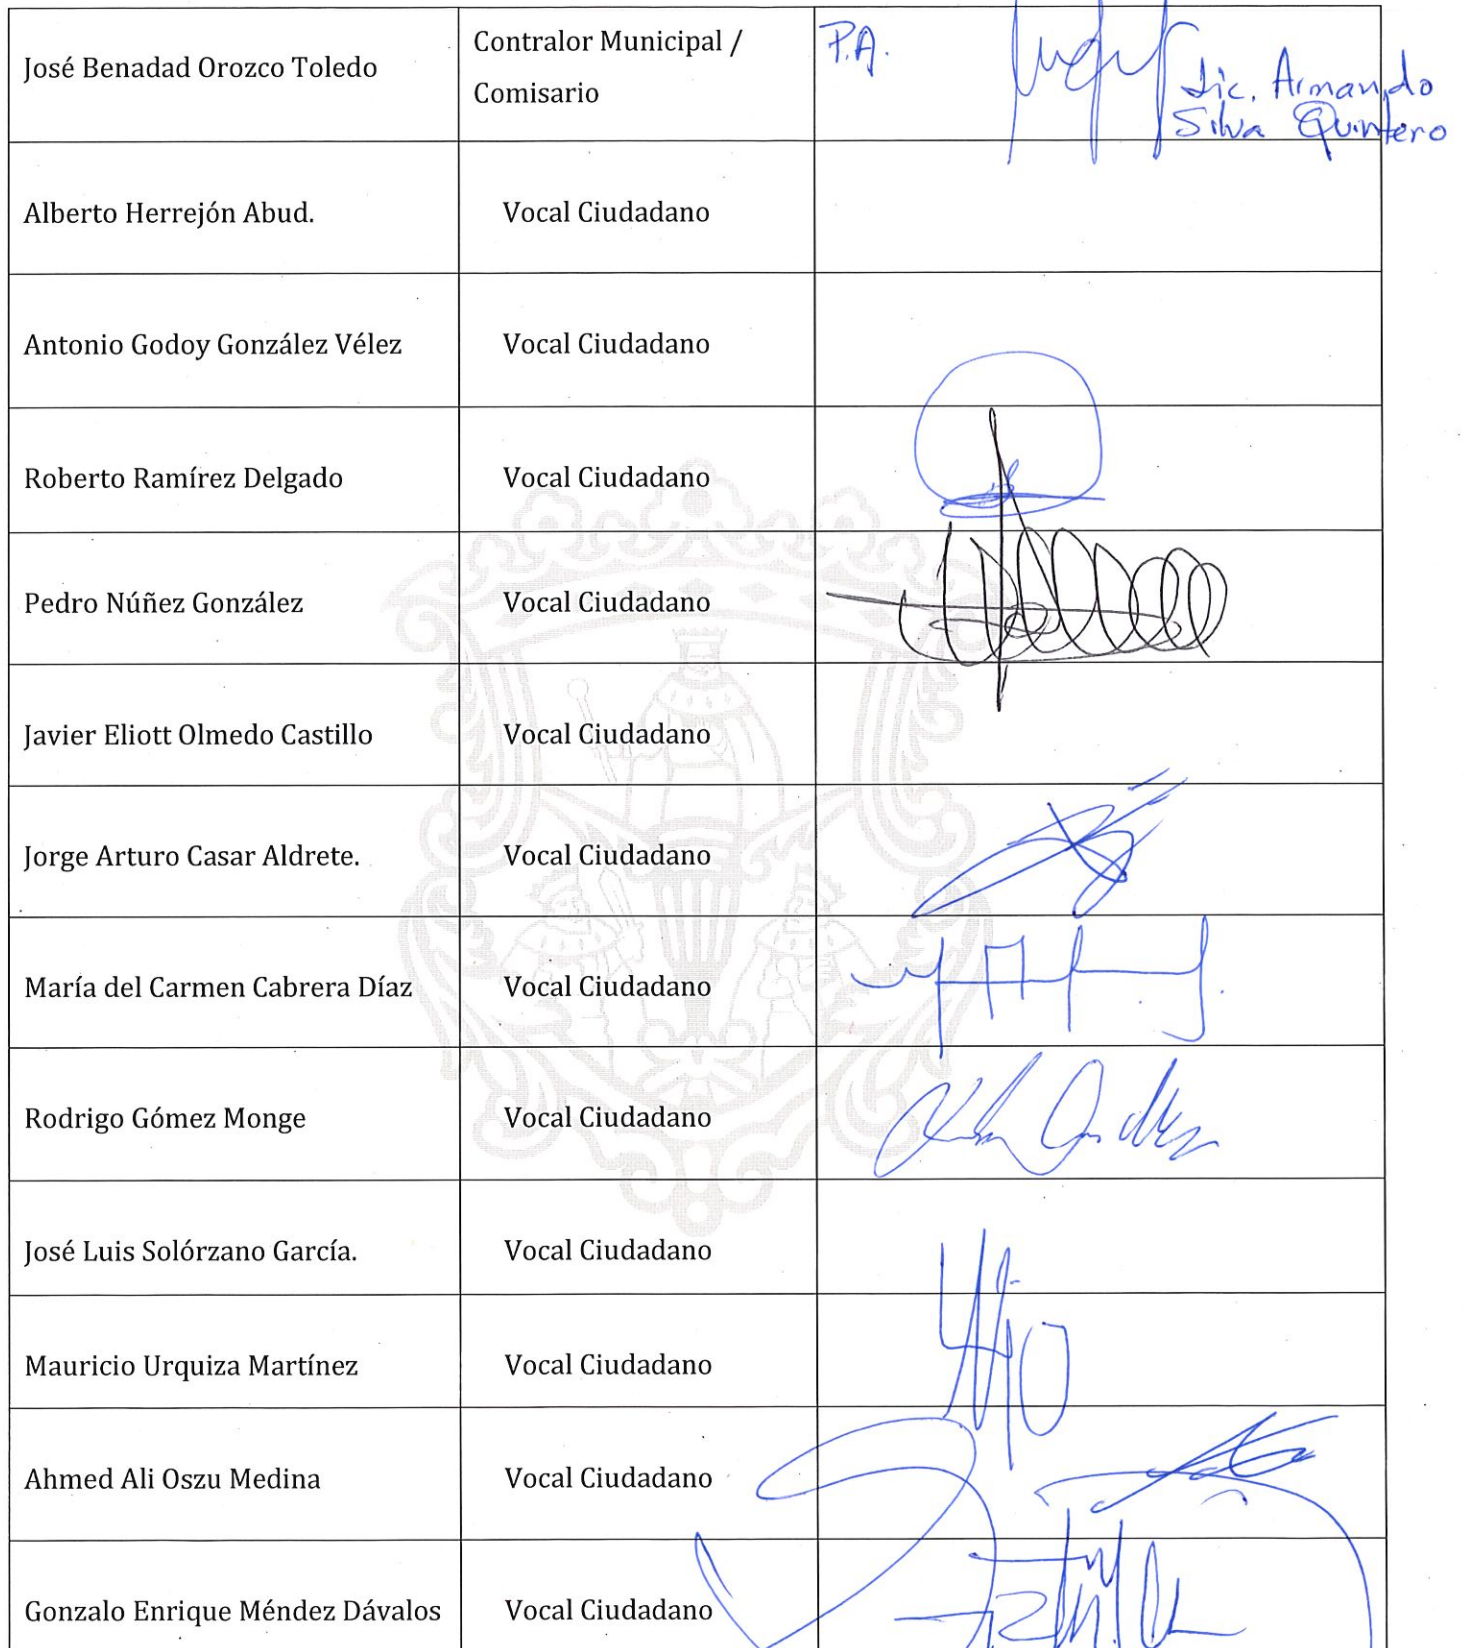 José Benadad Orozco Toledo
Contralor Municipal /
Comisario
P.A.
Lic. Armando
Silva Quintero
Alberto Herrejón Abud.
Vocal Ciudadano
Antonio Godoy González Vélez
Vocal Ciudadano
Roberto Ramírez Delgado
Vocal Ciudadano
Pedro Núñez González
Vocal Ciudadano
Javier Eliott Olmedo Castillo
Vocal Ciudadano
Jorge Arturo Casar Aldrete.
Vocal Ciudadano
María del Carmen Cabrera Díaz
Vocal Ciudadano
Rodrigo Gómez Monge
Vocal Ciudadano
José Luis Solórzano García.
Vocal Ciudadano
Mauricio Urquiza Martínez
Vocal Ciudadano
Ahmed Ali Oszu Medina
Vocal Ciudadano
Gonzalo Enrique Méndez Dávalos
Vocal Ciudadano